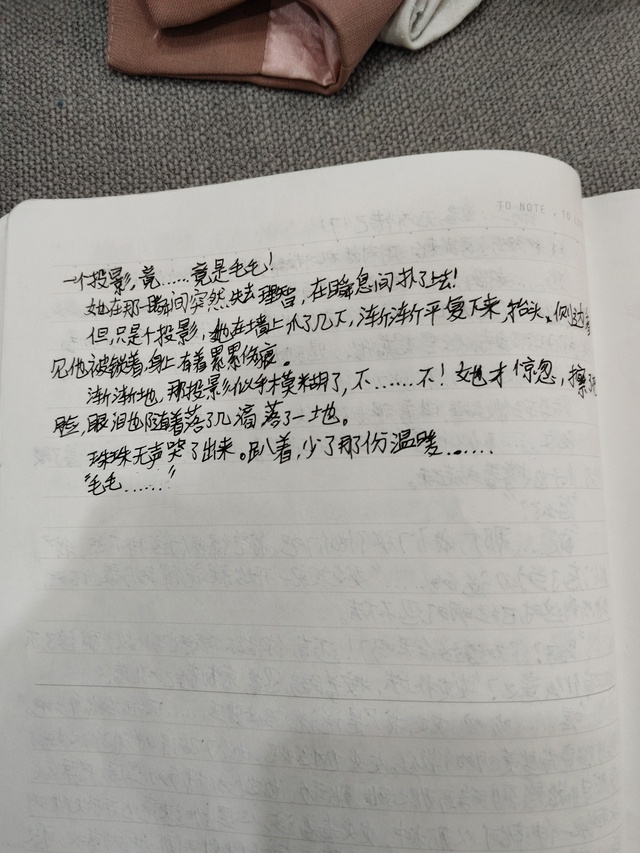 TO NOTE , TO
一个投影,竟……竟是毛毛!
她在那一瞬间突然失去理智,在瞬息间扑了上去!
但,只是个投影,她在墙上爪了几下,渐渐平复下来,抬头,
见他被锁着,身上有着累累伤痕。
渐渐地,那投影似乎模糊了,不……不!她才惊忽,擦
脸,眼泪也随着落了几滴落了一地。
珠珠无声哭了出来。趴着,少了那份温暖……
"毛毛……"